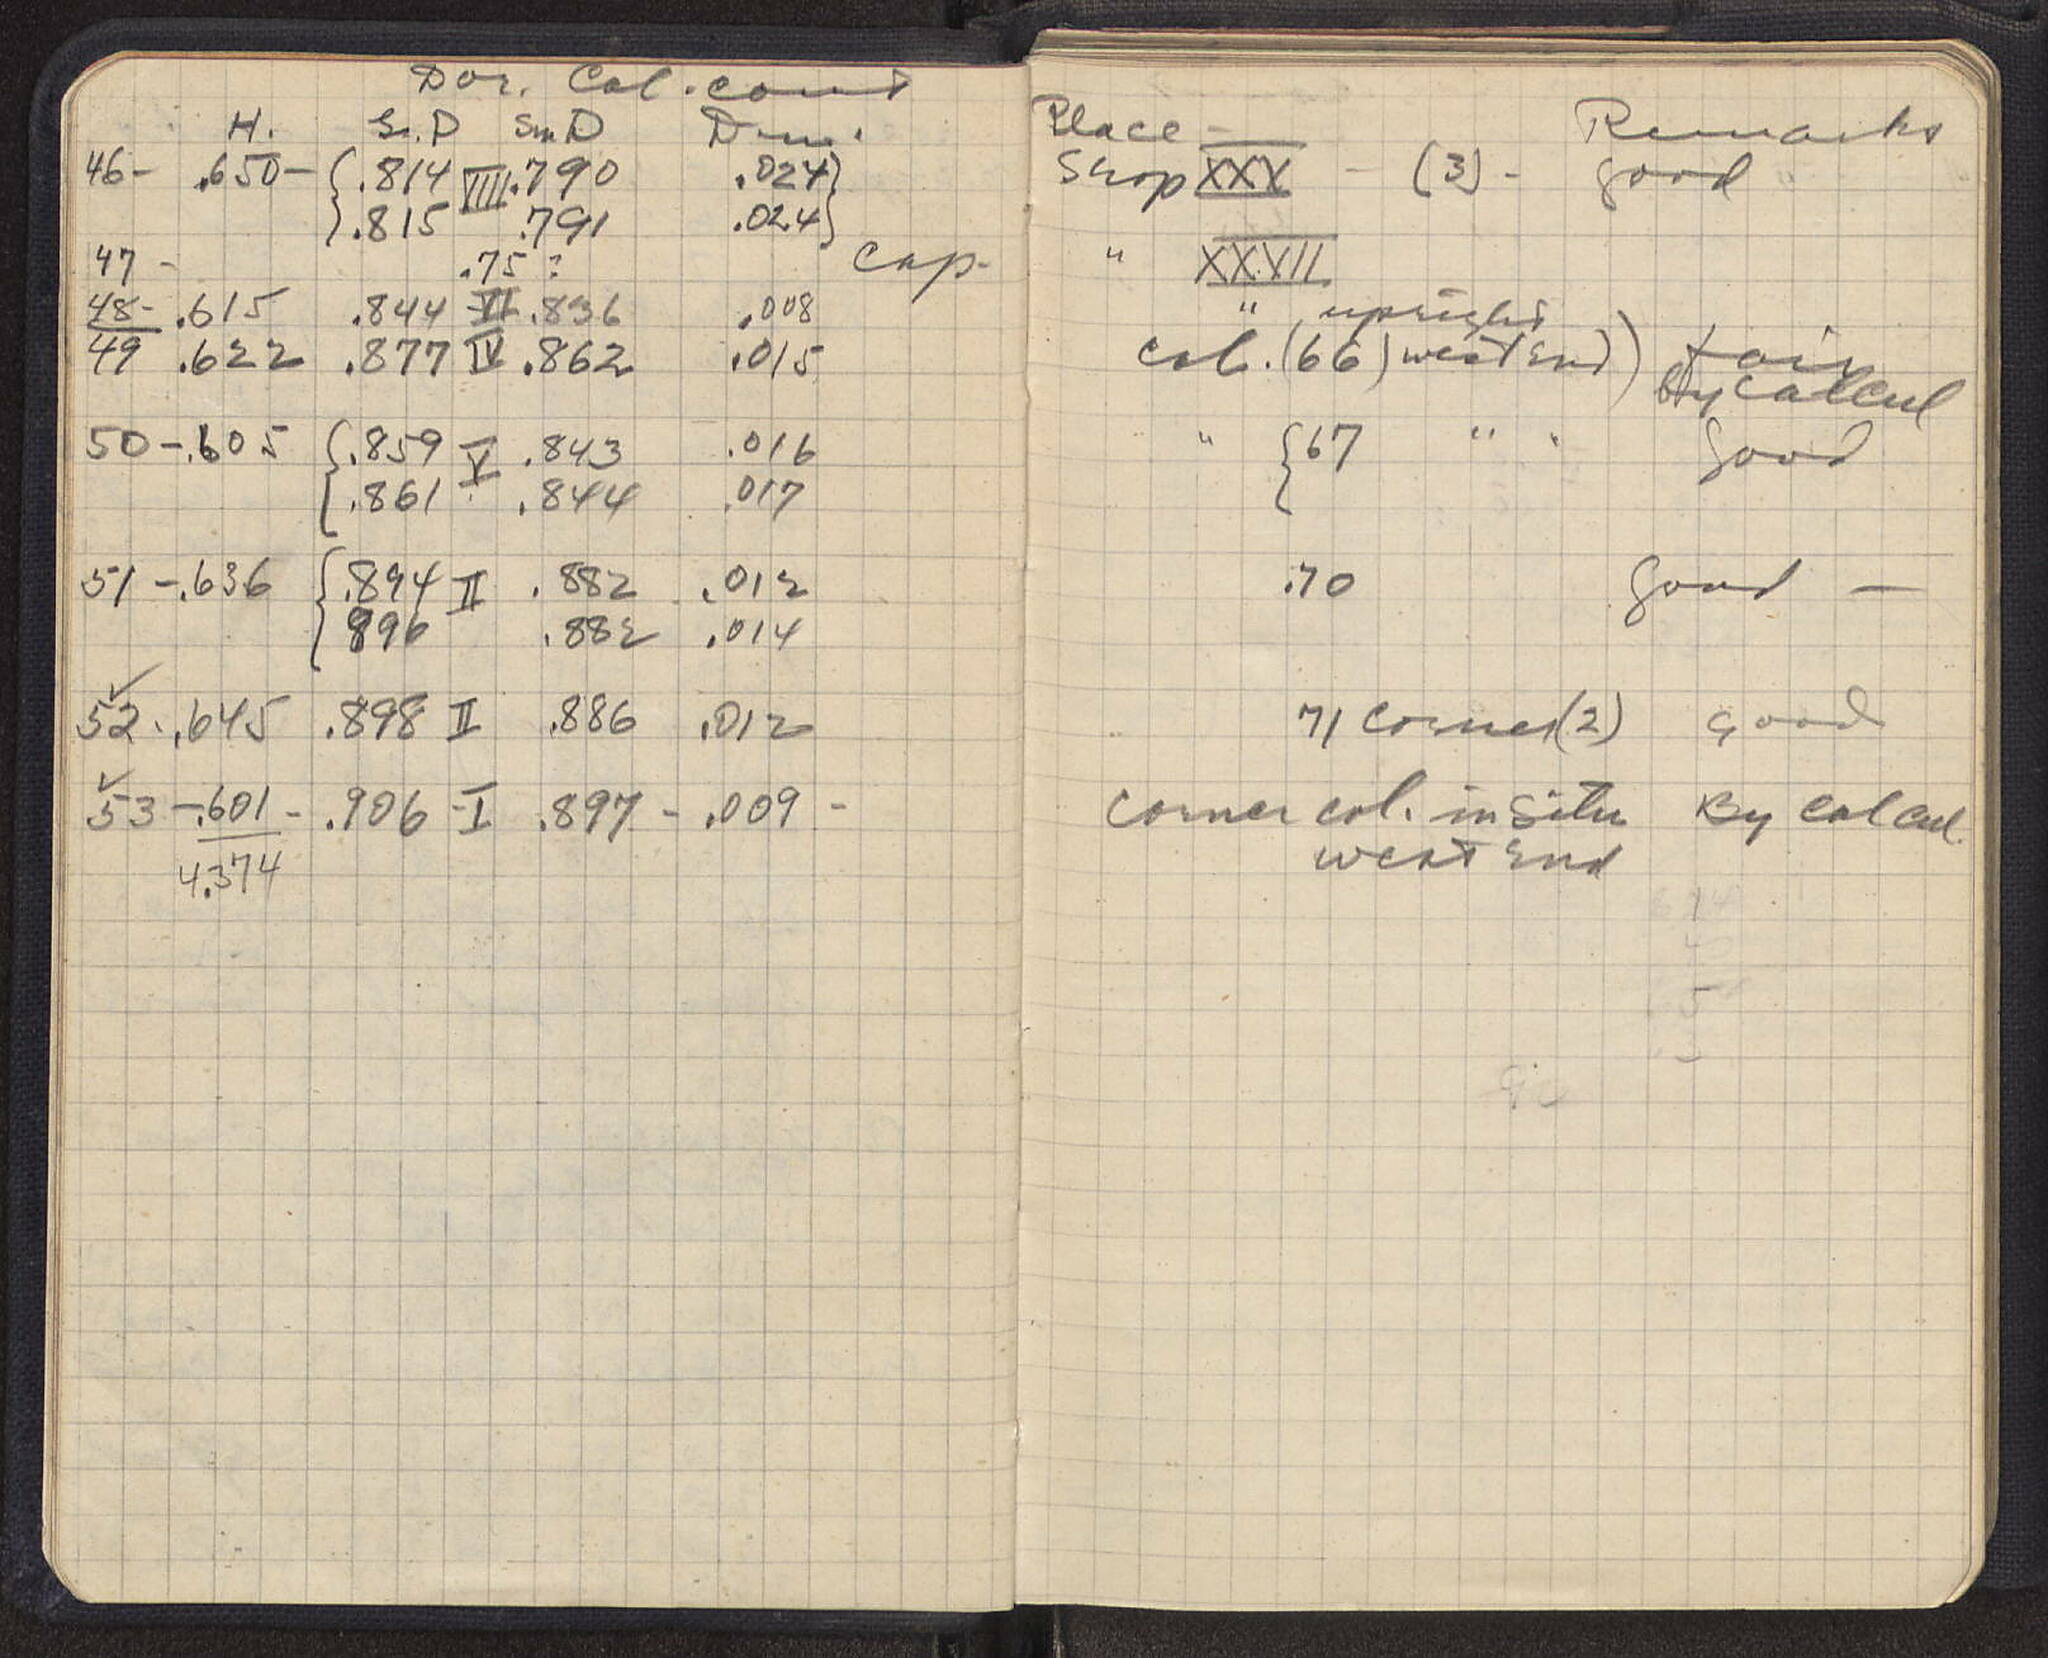 Dor. Col. cont
H. Gr. D Sm. D Dim.
46- .650- .814 VIII .790 .024
.815 .791 .024
47 - .75 ? Cap-
48- .615 .844 VI .836 .008
49 .622 .877 IV .862 .015
50 - .605 .859 V .843 .016
.861 .844 .017
51 - .636 .894 II .882 .012
896 .882 .014
52 - .645 .898 II .886 .012
53 - .601 - .906 - I .897 - .009 -
4.374
Place - Remarks
Shop XXX - (3) - good
" XXXVII
" upright
Col. (66) west end) fair
By calcul
" 67 " " good
.70 good —
71 corner (2) good
Corner col. in situ By Calcul.
west end